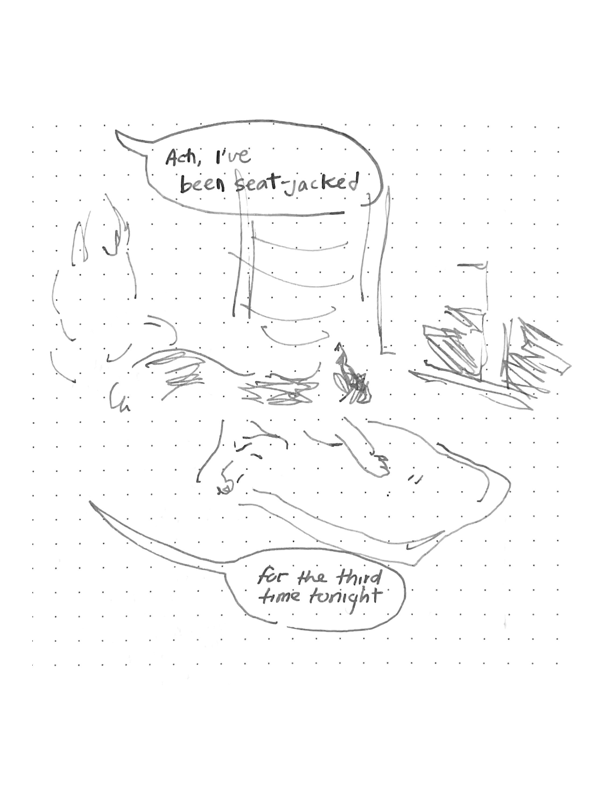 Ach, I've
been seat-jacked
for the third
time tonight